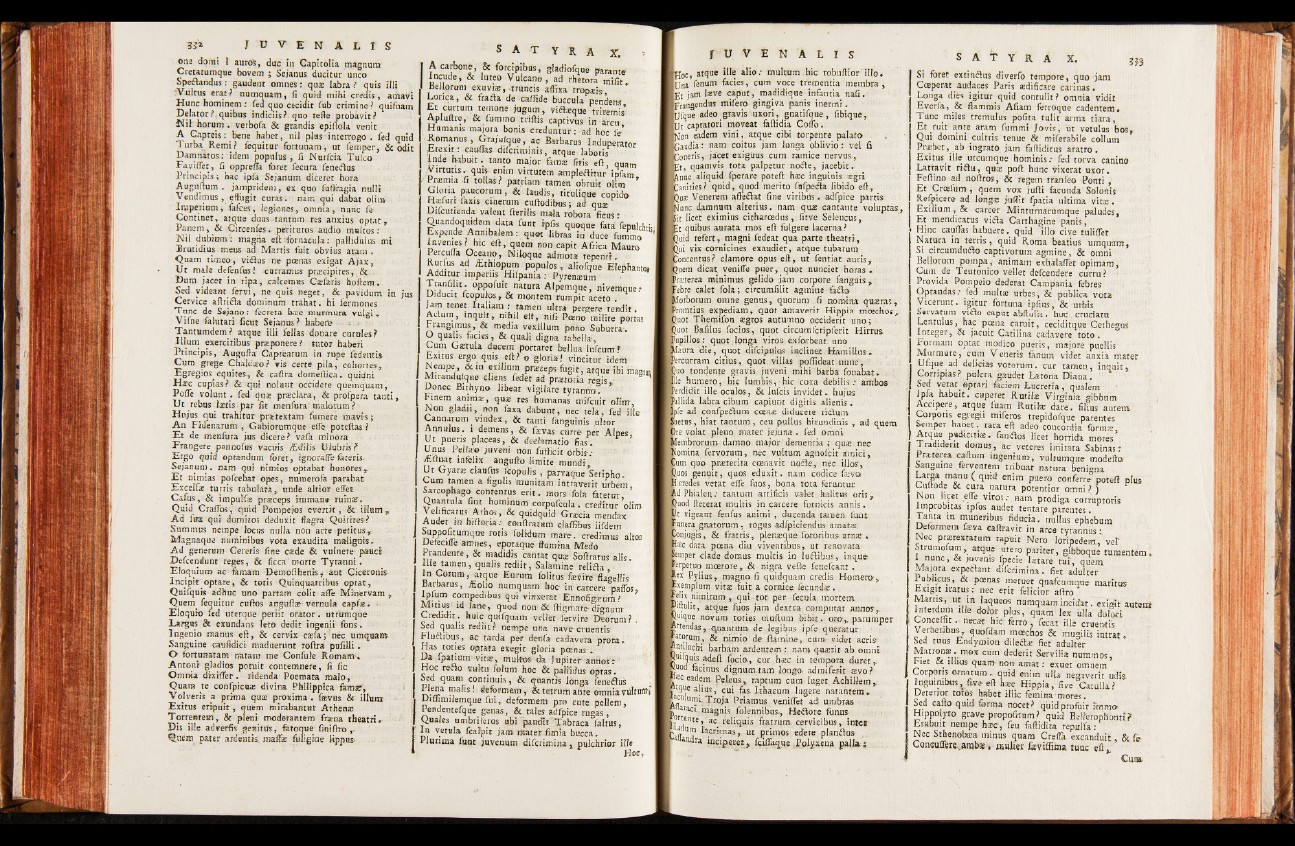 332 JUVENALIS
one domi lauros, duc in Capitolia magnum
Cretatumque bovem ; Sejanus ducitur unco
Spectandus : gaudent omnes : quæ labra ? quis illi
Vultus erat ? numquam, ſi quid mihi credis, amavi
Hunc hominem : ſed quo cecidit ſub crimine ? quiſnam
Delator ? quibus indiciis ? quo teſte probavit ?
Nil horum. verboſa & grandis epiſtola venit
A Capreis : bene habet, nil plus interrogo . ſed quid
Turba Remi ? ſequitur fortunam, ut ſemper, & odit
Damnatos : idem populus , ſi Nurſcia Tuſco
Faviſſet, ſi oppreſſa foret ſecura ſenectus
Principis ; hac ipſa Sejanum diceret hora
Auguſtum . jampridem, ex quo ſuffragia nulli
Vendimus , effugit curas. nam qui dabat olim
Imperium, faſces, legiones, omnia, nunc ſe
Continet, atque duas tantum res anxius optat ,
Panem , & Circenſes. perituros audio multos :
Nil dubium : magna eſt fornacula : pallidulus mi
Brutidius meus ad Martis fuit obvius aram .
Quam timeo, victus ne pœnas exigat Ajax,
Ut male defenſus ! curramus præcipites, &
Dum jacet in ripa, calcemus Cæſaris hoſtem.
Sed videant ſervi, ne quis neget, & pavidum in jus
Cervice aſtricta dominum trahat. hi ſermones
Tunc de Sejano : ſecreta hæc murmura vulgi .
Viſne ſalutari ſicut Sejanus ? habere
Tantumdem ? atque illi ſellas donare curules ?
Illum exercitibus præponere ? tutor haberi
Principis, Auguſta Caprearum in rupe ſedentis
Cum grege Chaldæo ? vis certe pila, cohortes,
Egregios equites, & caſtra domeſtica. quidni
Hæc cupias ? & qui nolunt occidere quemquam ,
Poſſe volunt . ſed quæ præclara, & proſpera tanti,
Ut rebus lætis par ſit menſura malorum ?
Hujus qui trahitur prætextam ſumere mavis ;
An Fidenarum , Gabiorumque eſſe poteſtas ?
Et de menſura jus dicere ? vaſa minora
Frangere pannoſus vacuis Ædilis Ulubris ?
Ergo quid optandum foret, ignoraſſe fateris
Sejanum . nam qui nimios optabat honores ,
Et nimias poſcebat opes, numeroſa parabat
Excelſæ turris tabulata, unde altior eſſet
Caſus , & impulſæ præceps immane ruinæ.
Quid Craſſos, quid Pompejos evertit , & illum ,
Ad ſua qui domitos deduxit flagra Quirites ?
Summus nempe locus nulla non arte petitus ,
Magnaque numinibus vota exaudita malignis .
Ad generum Cereris ſine cæde & vulnere pauci
Deſcendunt reges, & ſicca morte Tyranni .
Eloquium ac famam Demoſthenis, aut Ciceronis
Incipit optare, & totis Quinquatribus optat ,
Quiſquis adhuc uno partam colit aſſe Minervam ,
Quem ſequitur cuſtos anguſtæ vernula capſæ .
Eloquio ſed uterque perit orator . utrumque
Largus & exundans leto dedit ingenii fons .
Ingenio manus eſt, & cervix cæſa ; nec umquam
Sanguine cauſidici maduerunt roſtra puſilli .
O fortunatam natam me Conſule Romam .
Antoni gladios potuit contemnere, ſi ſic
Omnia dixiſſet . ridenda Poemata malo,
Quam te conſpicuæ divina Philippica famæ,
Volveris a prima quæ proxima . ſævus & illum
Exitus eripuit , quem mirabantur Athenæ
Torrentem, & pleni moderantem fræna theatri .
Dis ille adverſis genitus , fatoque ſiniſtro ,
Quem pater ardentis maſſæ fuligine lippus
SATYRA X.
A carbone, & forcipibus, gladioſque parante
Incude, & luteo Vulcano , ad rhetora miſit .
Bellorum exuviæ, truncis affixa tropæis,
Lorica , & fracta de caſſide buccula pendens,
Et curtum temone jugum, victæque triremis
Apluſtre, & ſummo triſtis captivus in arcu,
Humanis majora bonis creduntur : ad hoc ſe
Romanus , Grajuſque, ac Barbarus Induperator
Erexit : cauſſas diſcriminis, atque laboris
Inde habuit . tanto major famæ ſitis eſt, quam
Virtutis . quis enim virtutem amplectitur ipſam,
Præmia ſi tollas ? patriam tamen obruit olim
Gloria paucorum , & laudis, titulique cupido
Hæſuri ſaxis cinerum cuſtodibus ; ad quæ
Diſcutienda valent ſterilis mala robora ficus :
Quandoquidem data ſunt ipſis quoque fata ſepulchris,
Expende Annibalem : quot libras in duce ſummo
Invenies ? hic eſt, quem non capit Africa Mauro
Percuſſa Oceano, Niloque admota tepenti .
Rurſus ad Æthiopum populos , alioſque Elephantos
Additur imperiis Hiſpania : Pyrenæum
Tranſilit . oppoſuit natura Alpemque, nivemque :
Diducit ſcopulos, & montem rumpit aceto .
Jam tenet Italiam : tamen ultra pergere tendit .
Actum , inquit , nihil eſt, niſi Pœno milite portas
Frangimus, & media vexillum pono Subura .
O qualis facies, & quali digna tabella,
Cum Gætula ducem portaret bellua luſcum !
Exitus ergo quis eſt ? o gloria ! vincitur idem
Nempe, & in exilium præceps fugit, atque ibi magnus
Mirandusque cliens ſedet ad prætoria regis ,
Donec Bithyno libeat vigilare tyranno .
Finem animæ, quæ res humanas miſcuit olim,
Non gladii, non ſaxa dabunt, nec tela, ſed ille
Cannarum vindex , & tanti ſanguinis ultor
Annulus. i demens , & ſævas curre per Alpes,
Ut pueris placeas, & declamatio fias .
Unus Pellæo juveni non ſufficit orbis :
Æſtuat infelix anguſto limite mundi,
Ut Gyaræ clauſus ſcopulis , parvaque Seripho .
Cum tamen a figulis munitam intraverit urbem,
Sarcophago contentus erit . mors ſola fatetur,
Quantula ſint hominum corpuſcula . creditur olim
Velificatus Athos , & quidquid Græcia mendax
Audet in hiſtoria : conſtratum claſſibus iiſdem
Suppoſitumque rotis ſolidum mare . credimus altos
Defeciſſe amnes, epotaque flumina Medo
Prandente, & madidis cantat quæ Soſtratus alis .
Ille tamen , qualis rediit , Salamine relicta ,
In Corum, atque Eurum ſolitus ſævire flagellis
Barbarus , Æolio numquam hoc in carcere paſſos,
Ipſum compedibus qui vinxerat Ennoſigæum ?
Mitius id ſane, quod non & ſtigmate dignum
Credidit . huic quiſquam vellet ſervire Deorum ?
Sed qualis rediit ? nempe una nave cruentis
Fluctibus, ac tarda per denſa cadavera prora .
Has toties optata exegit gloria pœnas .
Da ſpatium vitæ, multos da Jupiter annos :
Hoc recto vultu ſolum hoc & pallidus optas .
Sed quam continuis, & quantis longa ſenectus
Plena malis ! deformem , & tetrum ante omnia vultum,
Diſſimilemque ſui, deformem pro cute pellem,
Pendenteſque genas, & tales adſpice rugas ,
Quales umbriferos ubi pandit Tabraca ſaltus,
In vetula ſcalpit jam mater ſimia bucca .
Plurima ſunt juvenum diſcrimina , pulchrior ille
Hoc,
JUVENALIS
Hoc, atque ille alio : multum hic robuſtior illo.
Una ſenum facies, cum voce trementia membra ,
Et jam læve caput, madidique infantia naſi.
Frangendus miſero gingiva panis inermi .
Uſque adeo gravis uxori, gnatiſque , ſibique,
Ut captatori moveat faſtidia Coſſo .
Non eadem vini , atque cibi torpente palato
Gaudia : nam coitus jam longa oblivio : vel ſi
Coneris, jacet exiguus cum ramice nervus,
Et, quamvis tota palpetur nocte, jacebit.
Anne aliquid ſperare poteſt hæc inguinis ægri
Canities ? quid, quod merito ſuſpecta libido eſt,
Quæ Venerem affectat ſine viribus . adſpice partis
Nunc damnum alterius. nam quæ cantante voluptas,
Sit licet eximius citharœdus , ſitve Seleucus,
Et quibus aurata mos eſt fulgere lacerna ?
Quid refert, magni ſedeat qua parte theatri,
Qui vix cornicines exaudiet, atque tubarum
Concentus ? clamore opus eſt, ut ſentiat auris,
Quem dicat veniſſe puer, quot nunciet horas .
Præterea minimus gelido jam corpore ſanguis ,
Febre calet ſola ; circumſilit agmine facto
Morborum omne genus , quorum ſi nomina quæras,
Promtius expediam, quot amaverit Hippia mœchos,
Quot Themiſon ægros autumno occiderit uno ;
Quot Baſilus ſocios, quot circumſcripſerit Hirrus
Pupillos : quot longa viros exſorbeat uno
Maura die, quot diſcipulos inclinet Hamillus .
Percurram citius, quot villas poſſideat nunc,
Quo tondente gravis juveni mihi barba ſonabat.
Ille humero, hic lumbis, hic coxa debilis : ambos
Perdidit ille oculos, & luſcis invidet . hujus
Pallida labra cibum capiunt digitis alienis .
Ipſe ad conſpectum cœnæ diducere rictum
Suetus, hiat tantum , ceu pullus hirundinis , ad quem
Ore volat pleno mater jejuna . ſed omni
Membrorum damno major dementia ; quæ nec
Nomina ſervorum , nec vultum agnoſcit amici,
Cum quo præterita cœnavit nocte, nec illos,
Quos genuit , quos eduxit . nam codice ſævo
Heredes vetat eſſe ſuos, bona tota feruntur
Ad Phialen : tantum artificis valet halitus oris ,
Quod ſteterat multis in carcere fornicis annis .
Ut vigeant ſenſus animi , ducenda tamen ſunt
Funera gnatorum , rogus adſpiciendus amatæ
Conjugis, & fratris, plenæque ſororibus urnæ .
Hæc data pœna diu viventibus, ut renovata
Semper clade domus multis in luctibus, inque
Perpetuo mœrore, & nigra veſte ſeneſcant .
Rex Pylius, magno ſi quidquam credis Homero,
Exemplum vitæ fuit a cornice ſecundæ .
Felix nimirum , qui tot per ſecula mortem
Diſtulit, atque ſuos jam dextra computat annos,
Quique novum toties muſtum bibit . oro, parumper
Attendas , quantum de legibus ipſe queratur
Fatorum, & nimio de ſtamine, cum videt acris
Antilochi barbam ardentem : nam quærit ab omni
Quiſquis adeſt ſocio, cur hæc in tempora duret,
Quod facinus dignum tam longo admiſerit ævo ?
Hæc eadem Peleus, raptum cum luget Achillem ,
Atque alius, cui fas Ithacum lugere natantem .
Incolumi Troja Priamus veniſſet ad umbras
Aſſaraci magnis ſolennibus, Hectore funus
Portante, ac reliquis fratrum cervicibus, inter
Iliadum lacrimas, ut primos edere planctus
Caſſandra inciperet, ſciſſaque Polyxena palla :
SATYRA X. 333
Si foret extinctus diverſo tempore, quo jam
Cœperat audaces Paris ædificare carinas .
Longa dies igitur quid contulit ? omnia vidit
Everſa, & flammis Aſiam ferroque cadentem.
Tunc miles tremulus poſita tulit arma tiara,
Et ruit ante aram ſummi Jovis, ut vetulus bos,
Qui domini cultris tenue & miſerabile collum
Præbet, ab ingrato jam faſtiditus aratro .
Exitus ille utcumque hominis : ſed torva canino
Latravit rictu, quæ poſt hunc vixerat uxor .
Feſtino ad noſtros, & regem tranſeo Ponti,
Et Crœſum , quem vox juſti facunda Solonis
Reſpicere ad longæ juſſit ſpatia ultima vitæ .
Exilium , & carcer Minturnarumque paludes,
Et mendicatus victa Carthagine panis,
Hinc cauſſas habuere . quid illo cive tuliſſet
Natura in terris , quid Roma beatius umquam,
Si circumducto captivorum agmine, & omni
Bellorum pompa , animam exhalaſſet opimam,
Cum de Teutonico vellet deſcendere curru ?
Provida Pompeio dederat Campania febres
Optandas : ſed multæ urbes , & publica vota
Vicerunt . igitur fortuna ipſius, & urbis
Servatum victo caput abſtulit . hoc cruciatu
Lentulus , hac pœna caruit , ceciditque Cethegus
Integer, & jacuit Catilina cadavere toto .
Formam optat modico pueris , majore puellis
Murmure, cum Veneris fanum videt anxia mater
Uſque ad delicias votorum . cur tamen , inquit ,
Corripias ? pulcra gaudet Latona Diana .
Sed vetat optari faciem Lucretia, qualem
Ipſa habuit . cuperet Rutilæ Virginia gibbum
Accipere, atque ſuam Rutilæ dare . filius autem
Corporis egregii miſeros trepidoſque parentes
Semper habet . rara eſt adeo concordia formæ,
Atque pudicitiæ . ſanctos licet horrida mores
Tradiderit domus, ac veteres imitata Sabinas :
Præterea caſtum ingenium, vultumque modeſto
Sanguine ferventem tribuat natura benigna
Larga manu ( quid enim puero conferre poteſt plus
Cuſtode & cura natura potentior omni ? )
Non licet eſſe viros : nam prodiga corruptoris
Improbitas ipſos audet tentare parentes .
Tanta in muneribus fiducia. nullus ephebum
Deformem ſæva caſtravit in arce tyrannus :
Nec prætextatum rapuit Nero loripedem, vel
Strumoſum, atque utero pariter, gibboque tumentem .
I nunc, & juvenis ſpecie lætare tui, quem
Majora expectant diſcrimina . fiet adulter
Publicus, & pœnas metuet quaſcumque maritus
Exigit iratus : nec erit felicior aſtro
Martis, ut in laqueos numquam incidat . exigit autem
Interdum ille dolor plus, quam lex ulla dolori
Conceſſit . necat hic ferro, ſecat ille cruentis
Verberibus, quoſdam mœchos & mugilis intrat .
Sed tuus Endymion dilectæ fiet adulter
Matronæ . mox cum dederit Servilia nummos,
Fiet & illius quam non amat : exuet omnem
Corporis ornatum . quid enim ulla negaverit udis
Inguinibus , ſive eſt hæc Hippia, ſive Catulla ?
Deterior totos habet illic femina mores .
Sed caſto quid forma nocet ? quid profuit immo
Hippolyto grave propoſitum ? quid Bellerophonti ?
Erubuit nempe hæc, ſeu faſtidita repulſa :
Nec Sthenobœa minus quam Creſſa excanduit, & ſe
Concuſſere ambæ . mulier ſæviſſima tunc eſt,
Cum